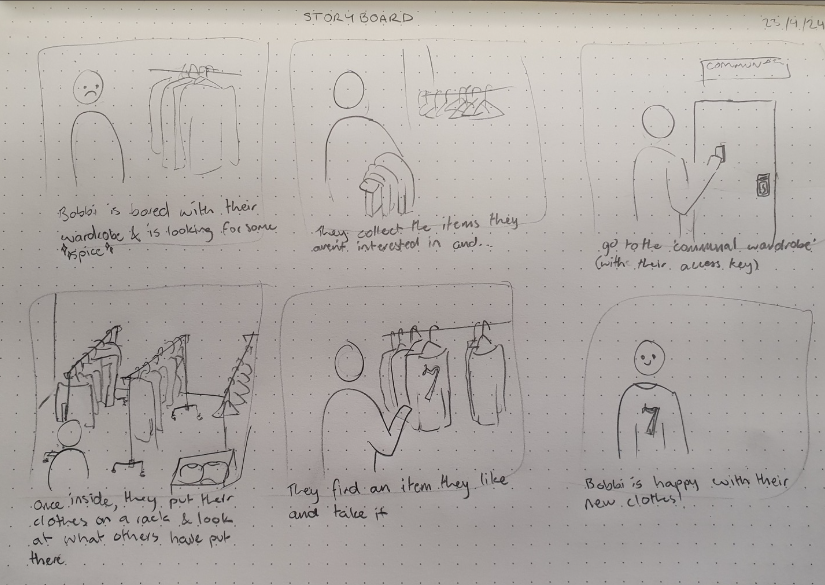 STORYBOARD
23/4/24
Bobbi is bored with their
wardrobe & is looking for some
"spice"
They collect the items they
arent interested in and...
COMMUNAL
go to the 'communal wardrobe'
(with their access key)
7
7
Once inside, they put their
clothes on a rack & look
at what others have put
there.
They find an item they like
and take it
Bobbi is happy with their
new clothes!